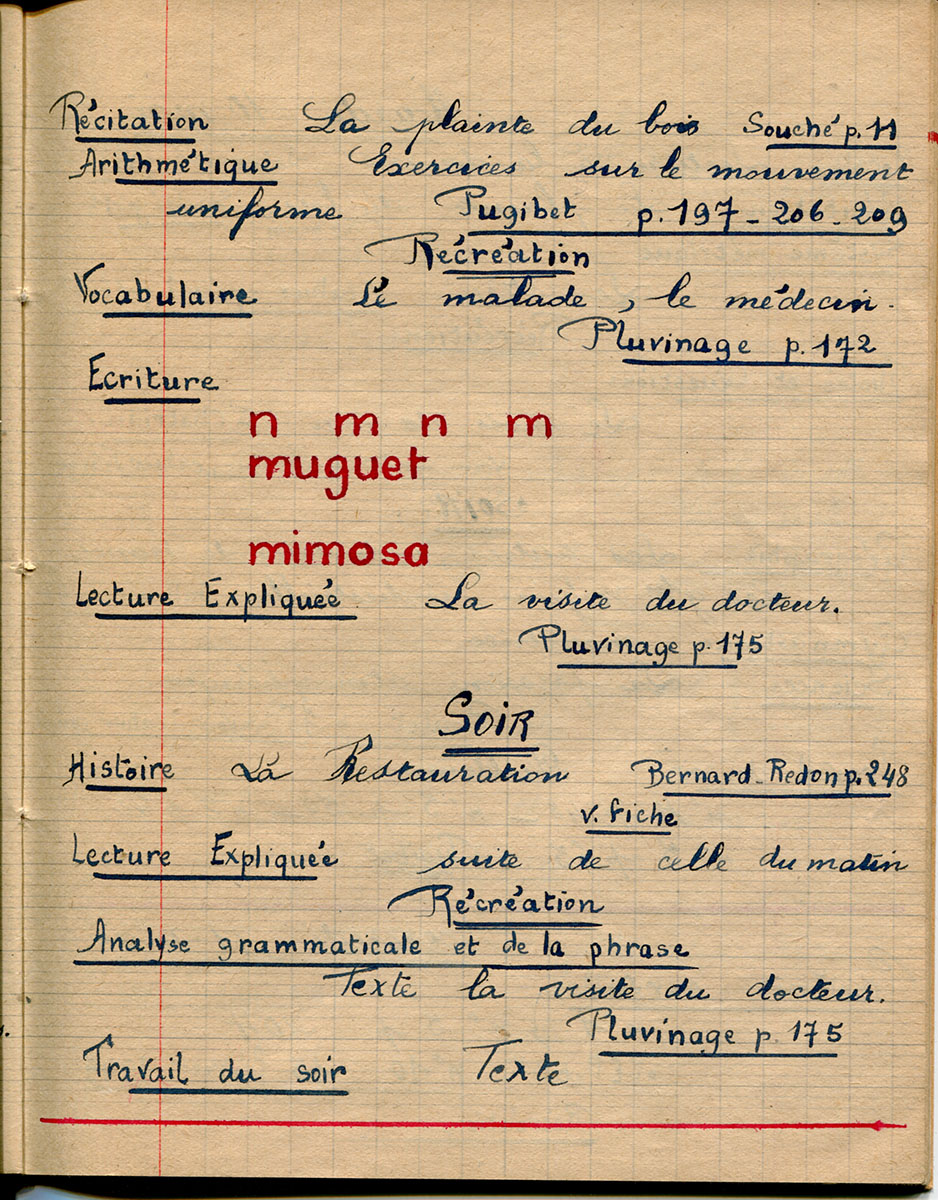 Récitation La plainte du bois Souché p. 11
Arithmétique Exercices sur le mouvement
uniforme Pugibet p. 197 - 206 - 209
Récréation
Vocabulaire Le malade, le médecin.
Pluvinage p. 172
Ecriture
n m n m
muguet
mimosa
Lecture Expliquée La visite du docteur.
Pluvinage p. 175
SOIR
Histoire La Restauration Bernard - Redon p. 248
v. fiche
Lecture Expliquée suite de celle du matin
Récréation
Analyse grammaticale et de la phrase
Texte la visite du docteur.
Pluvinage p. 175
Travail du soir Texte